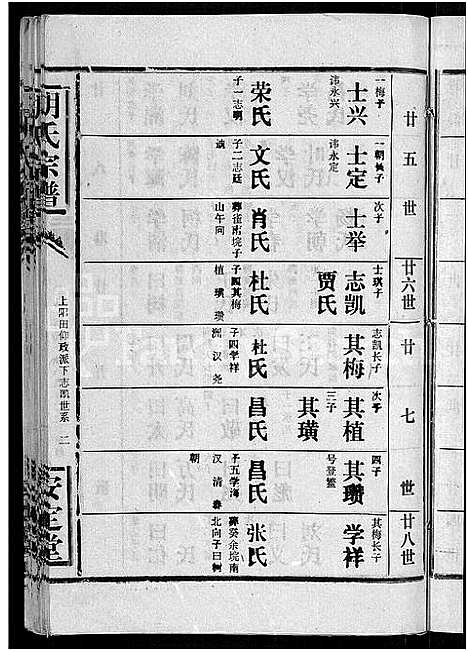 廿五世
廿六世
廿七世
廿八世
一梅子
士兴
讳永兴
荣氏
子一志明
士定
讳永定
文氏
子二志廷
诚
次子
士举
肖氏
葬雀南垸子
山午向
士琪子
志凯
贾氏
杜氏
子四其梅
植璜瓒
志凯长子
其梅
杜氏
子四学祥
洲汉尧
次子
其植
三子
其璜
昌氏
四子
其瓒
号登鳌
昌氏
子五学海
汉清春
朝
其梅长子
学祥
张氏
葬癸余垸南
北向子曰树
胡氏宗谱
上阳田仰政派下志凯世系 二
安定堂